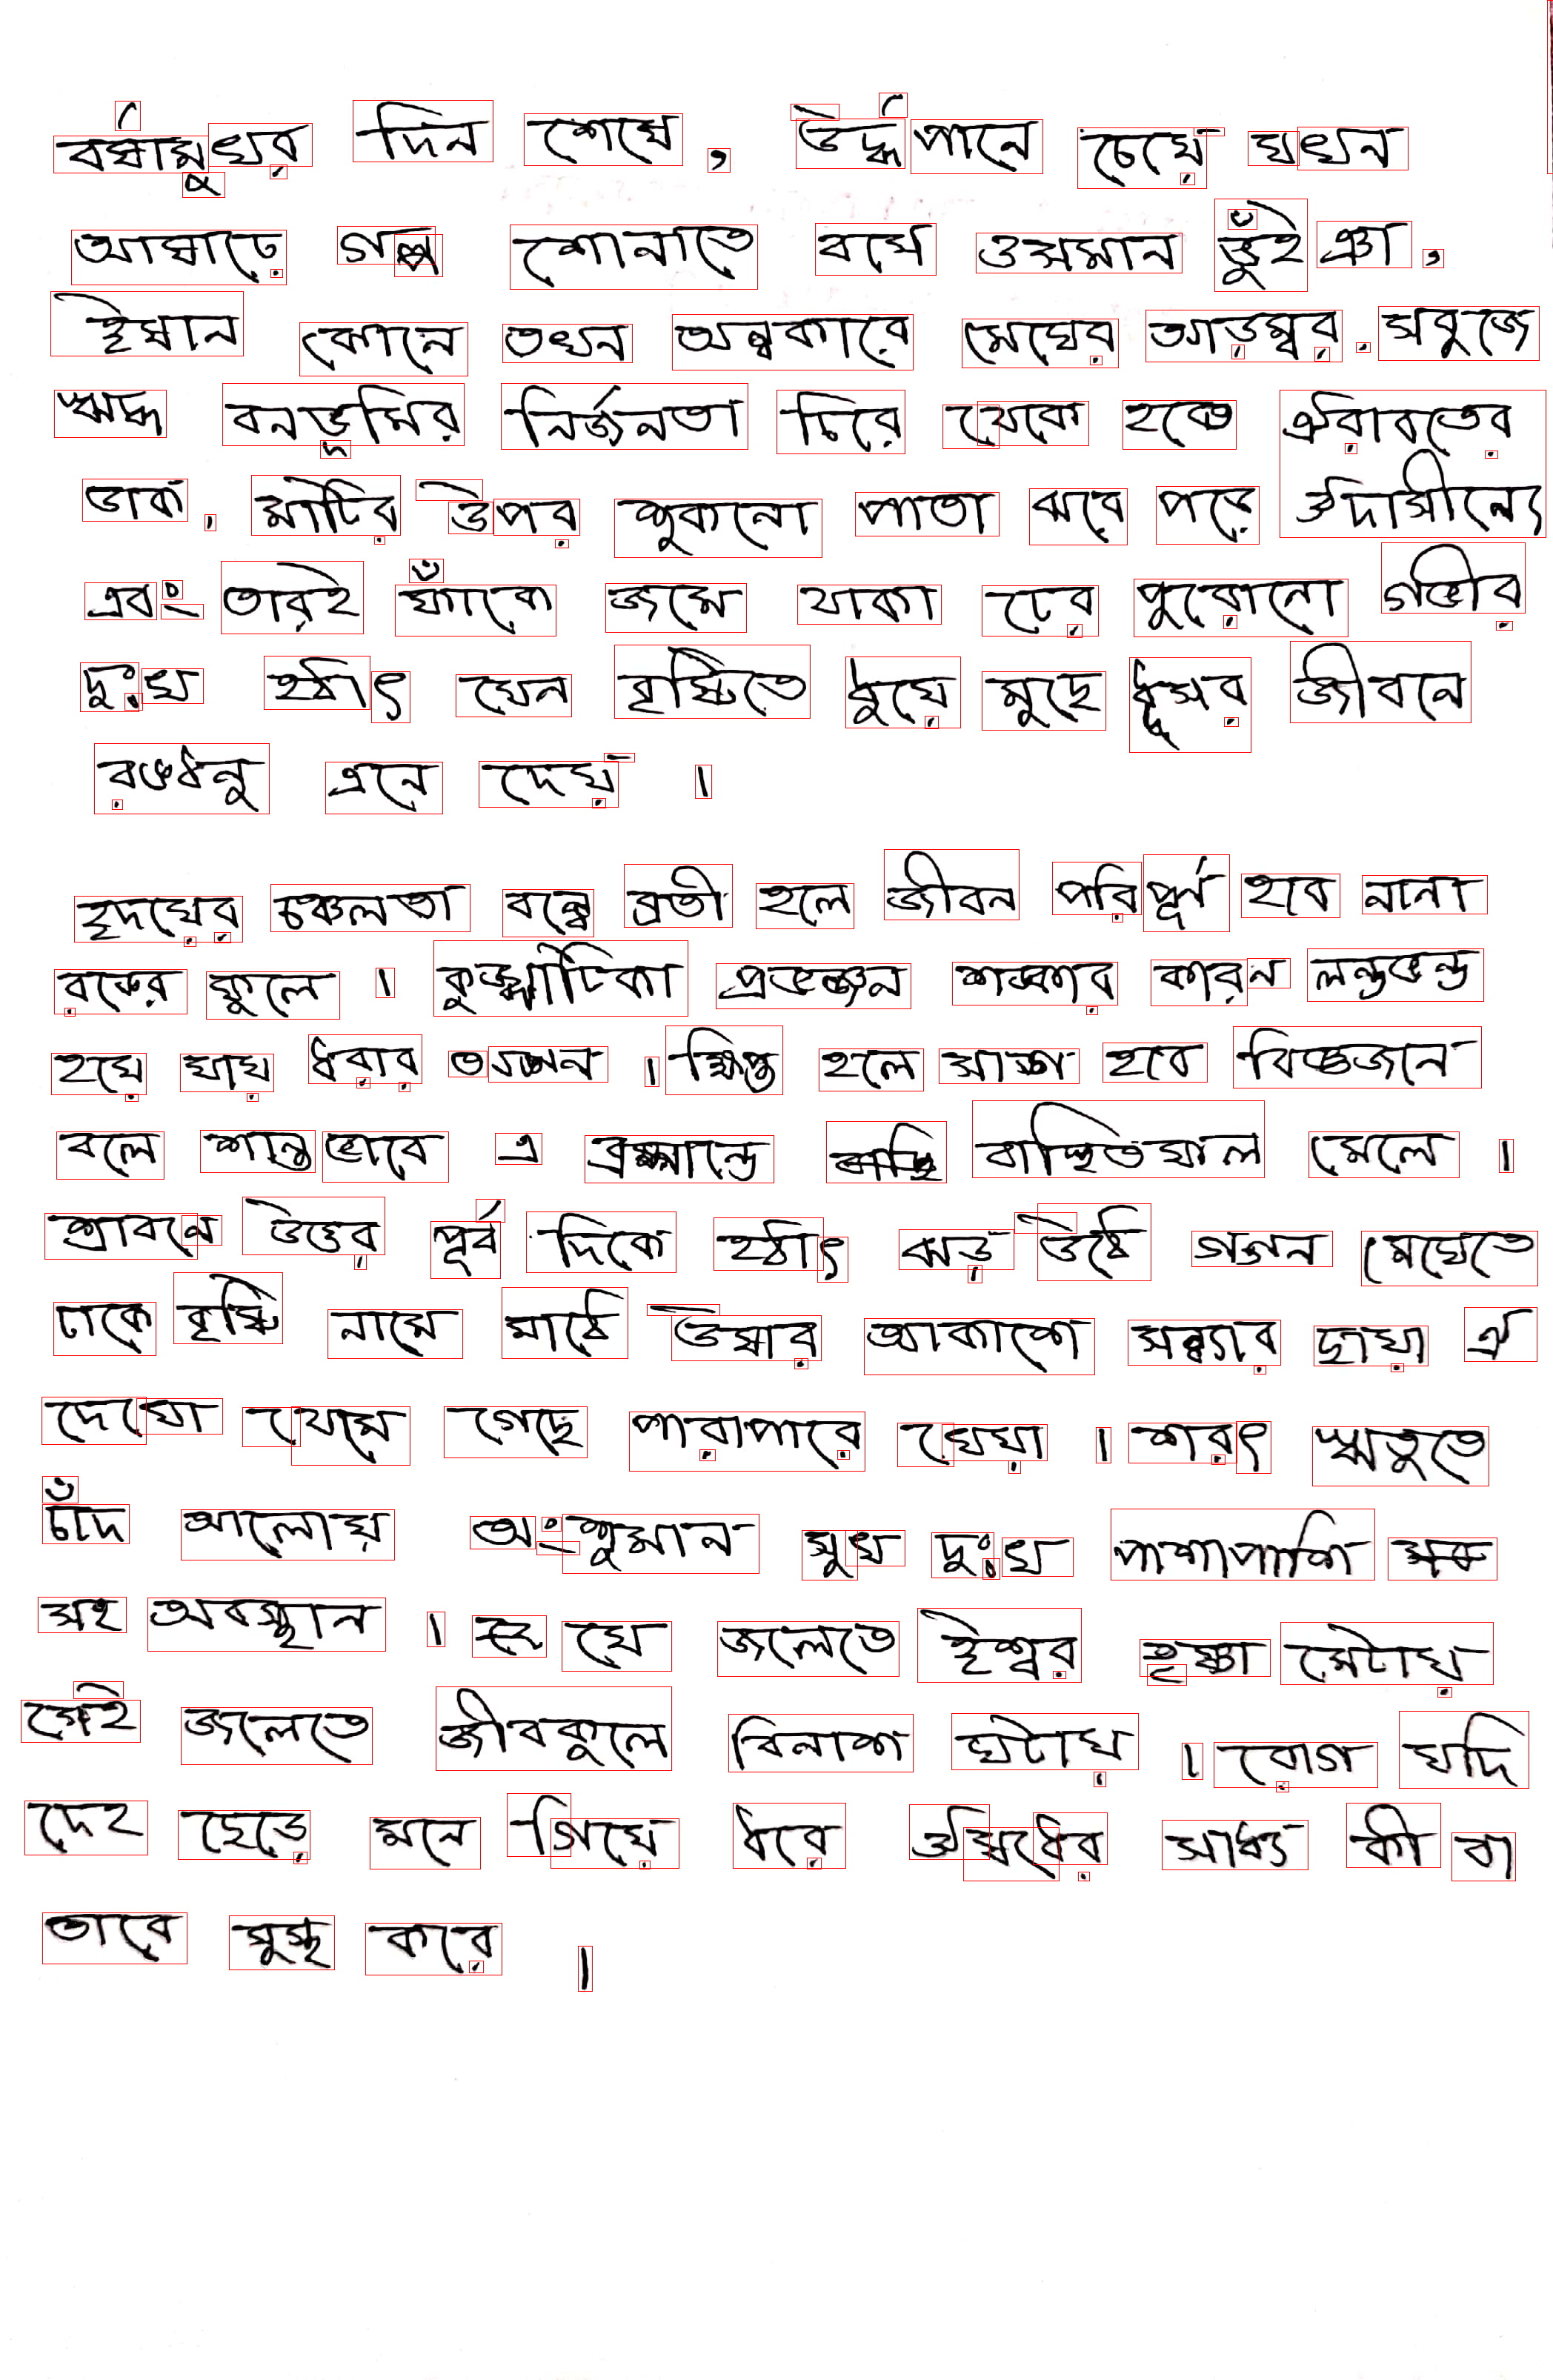 বর্ষামুখর দিন শেষে, উর্দ্ধপানে চেয়ে যখন
আষাঢ়ে গল্প শোনাতে বসে ওসমান ভুঁইঞা,
ঈষান কোনে তখন অন্ধকারে মেঘের আড়ম্বর, সবুজে
ঋদ্ধ বনভূমির নির্জনতা চিরে থেকে হঙে ঐরাবতের
ডাক, মাটির উপর শুকনো পাতা ঝরে পড়ে ঔদাসীন্যে
এবং তারই ফাঁকে জমে থাকা ঢের পুরোনো গভীর
দুঃখ হঠাৎ যেন বৃষ্টিতে ধুয়ে মুছে ধূসর জীবনে
রঙধনু এনে দেয় ।
হৃদয়ের চঞ্চলতা বন্ধে ব্রতী হলে জীবন পরিপূর্ণ হবে নানা
রঙের ফুলে । কুজ্ঝটিকা প্রভঞ্জন শঙ্কার কারন লন্ডভন্ড
হয়ে যায় ধরার অঙ্গন । ক্ষিপ্ত হলে সাঙ্গ হবে বিজ্ঞজনে
বলে শান্ত ভাবে এ ব্রহ্মান্ডে বাঞ্ছিতফল মেলে ।
শ্রাবনে উত্তর পূর্ব দিকে হঠাৎ ঝড় উঠে গগন মেঘেতে
ঢাকে বৃষ্টি নামে মাঠে ঊষার আকাশে সন্ধ্যার ছায়া ঐ
দেখো থেমে গেছে পারাপারে খেয়া । শরৎ ঋতুতে
চাঁদ আলোয় অংশুমান সুখ দুঃখ পাশাপাশি
সহ অবস্থান । যে জলেতে ঈশ্বর তৃষ্ণা মেটায়
সেই জলেতে জীবকুলে বিনাশ ঘটায় । রোগ যদি
দেহ ছেড়ে মনে গিয়ে ধরে ঔষধের সাধ্য কী বা
তারে সুস্থ করে ।